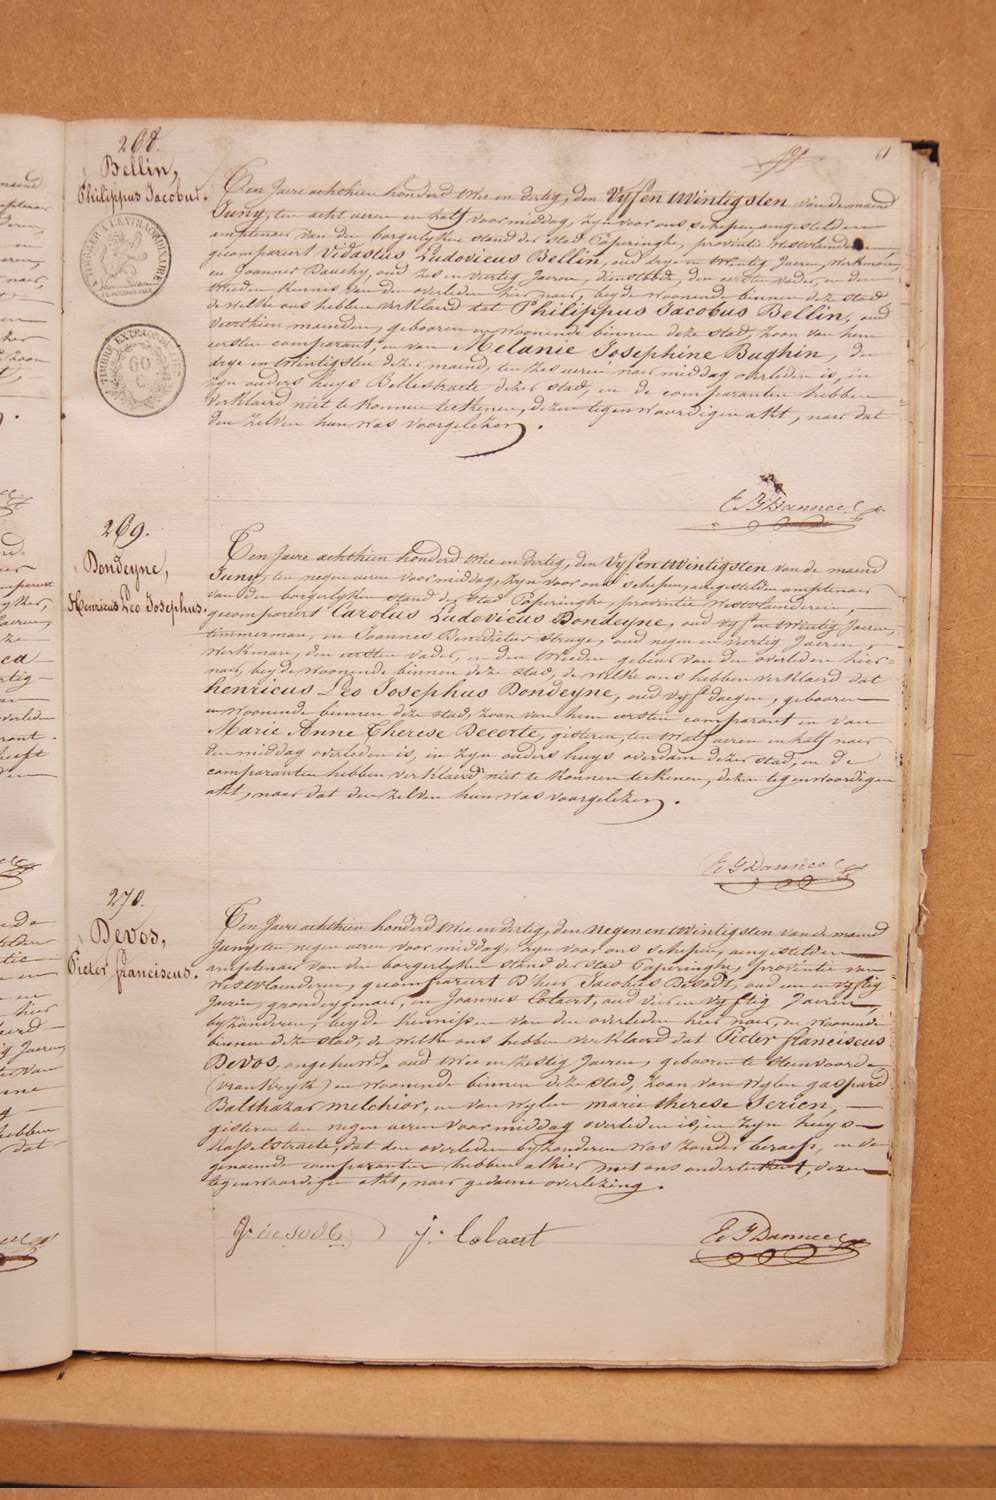 61
268.
Bellin,
Philippus Jacobus.
TIMBRE EXTRAORDINAIRE
60
C
Ten Jaere achthien honderd twee en dertig, den Vyfsen twintigsten van de maend
Juny, ten acht ueren en half voormiddag, zyn voor ons schepen, aengestelden
amptenaer van den borgerlyken stand der stad Poperinghe, provintie Westvlaenderen,
gecompareert Vidastus Ludovicus Bellin, oud drye en twintig Jaeren, werkman,
en Joannes Dauchy, oud zes en veertig Jaeren, dienstbode, den eersten vader, en den
tweeden kennis van den overleden hier naer, beyde woonende binnen deze stad
de welke ons hebben verklaerd dat Philippus Jacobus Bellin, oud
veerthien maenden, gebooren en woonende binnen deze stad, zoon van hem
eersten comparant, en van Melanie Josephine Baghin, den
drye en twintigsten dezer maend, ten zes ueren naer middag overleden is, in
zyn ouders huys Bellestraete dezer stad, en de comparanten hebben
verklaerd niet te konnen teekenen, dezen tegenwoordigen akt, naer dat
den zelven hun was voorgelezen.
269.
Dondeyne,
Henricus Leo Josephus.
Ten Jaere achthien honderd twee en dertig, den Vyfsen twintigsten van de maend
Juny, ten negen ueren voormiddag, zyn voor ons schepen, aengestelden amptenaer
van den borgerlyken stand der stad Poperinghe, provintie Westvlaenderen,
gecompareert Carolus Ludovicus Dondeyne, oud vyf en twintig Jaeren,
timmerman, en Joannes Benedictus Struye, oud negen en veertig Jaeren,
werkman, den eersten vader, en den tweeden gebeur van den overleden hier
naer, beyde woonende binnen deze stad, de welke ons hebben verklaerd dat
henricus Leo Josephus Dondeyne, oud vyf daegen, gebooren
en woonende binnen deze stad, zoon van hem eersten comparant en van
Marie Anne Therese Decorte, gisteren, ten twalf ueren en half naer
den middag overleden is, in zyn ouders huys overdam dezer stad, en de
comparanten hebben verklaerd niet te konnen teekenen, dezen tegenwoordigen
akt, naer dat den zelven hun was voorgelezen.
270.
Devos,
Pieter franciscus.
Ten Jaere achthien honderd twee en dertig, den Negen en twintigsten van de maend
Juny, ten negen ueren voor middag, zyn voor ons schepen, aengestelden
amptenaer van den borgerlyken stand der stad Poperinghe, provintie van
Westvlaenderen, gecompareert D'heer Jacobus, oud een en vyftig
Jaeren, grondeygenaer, en Joannes Colaert, oud vier en vyftig Jaeren,
byzonderen, beyde kennissen van den overleden hier naer, en woonende
binnen deze stad, de welke ons hebben verklaerd dat Pieter franciscus
Devos, ongehuwd, oud twee en zestig Jaeren, gebooren te Steenvoorde
(vrankryk) en woonende binnen deze stad, zoon van wylen gaspard
Balthazar melchior, en van wylen marie therese Serien,
gisteren ten negen ueren voormiddag overleden is, in zyn huys
Kasselstraete, dat den overleden byzonderen was zonder beroep, en de
genaemde comparanten hebben alhier met ons onderteekent, dezen
tegenwoordigen akt, naer gedaene overlezing.
j. Colaert